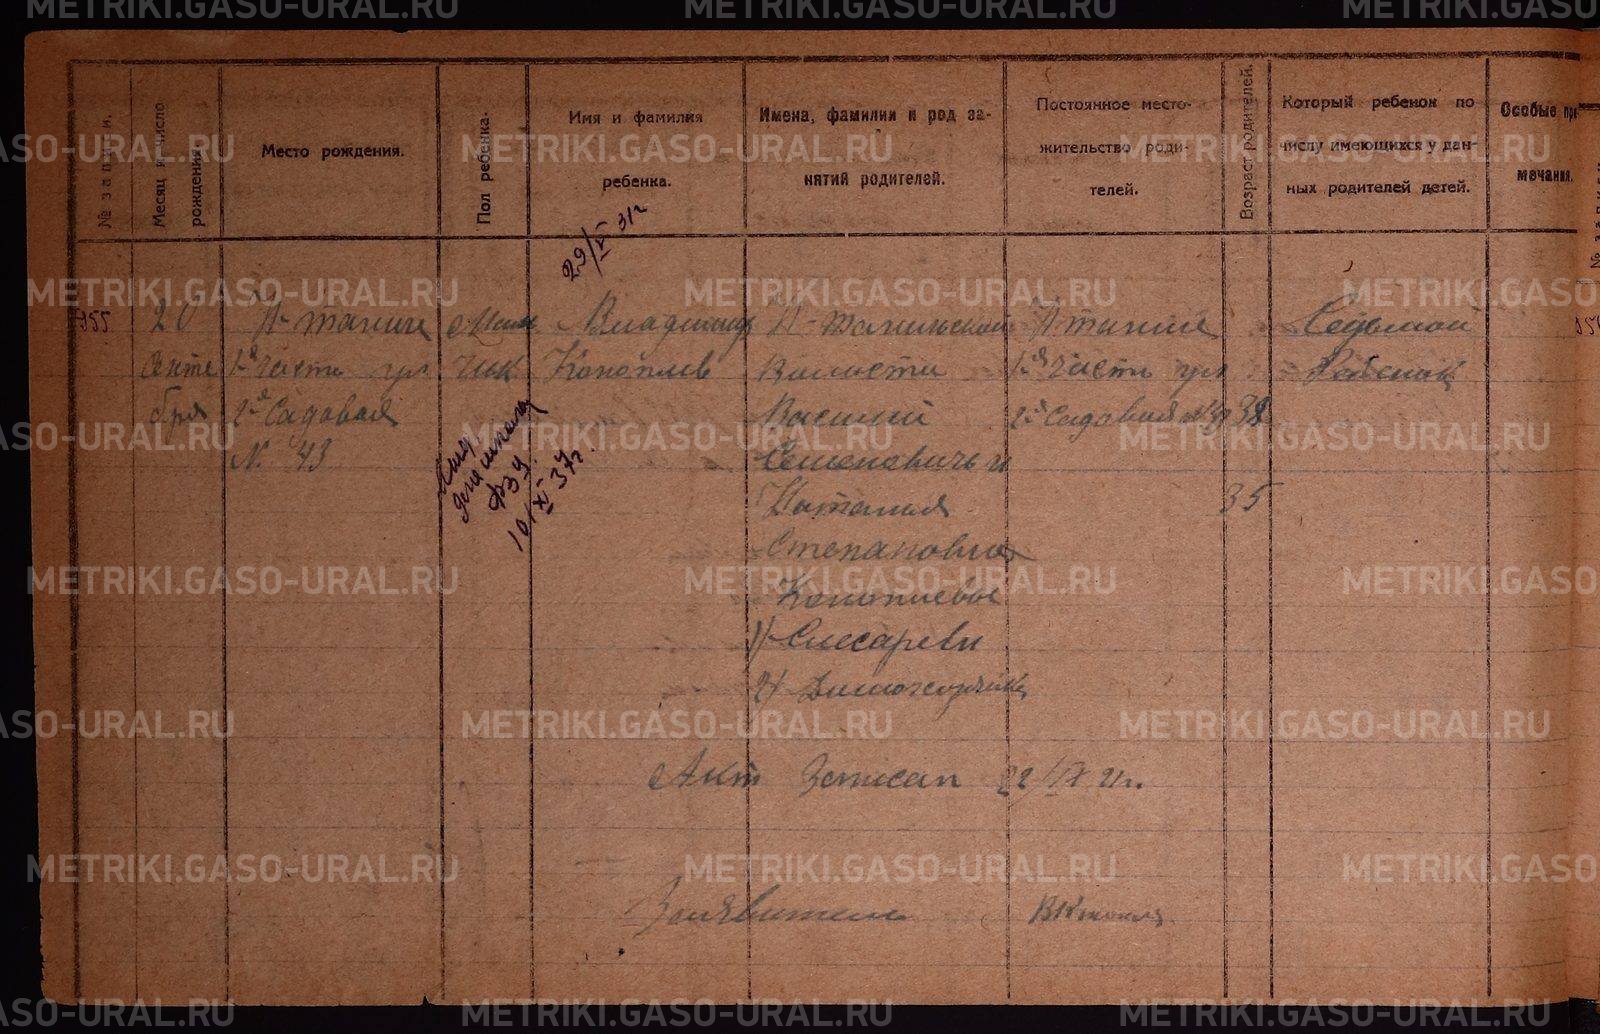 METRIKI.GASO-URAL.RU
№ записи.
Месяц и число рождения
Место рождения.
Пол ребенка.
Имя и фамилия
ребенка.
Имена, фамилии и род за-
нятий родителей.
Постоянное место-
жительство роди-
телей.
Возраст родителей.
Который ребенок по
числу имеющихся у дан-
ных родителей детей.
Особые при
мечания.
29/V 31г
955
20
Сентя
бря
Н-Тагиле
1-я часть ул
2-я Садовая
N. 43
Маль
чик
Владимир
Коноплев
Н-Тагильской
Волости
Василий
Семенович и
Наталия
Степановна
Коноплевы
1/-Слесарев
2/ Домохозяйка
Н Тагиле
1-я часть ул
2-я Садовая
38
35
Седьмой
Ребенок
для школы
ФЗУ
10/XI 37г.
Акт Записан 22/IX 21г.
Заявители